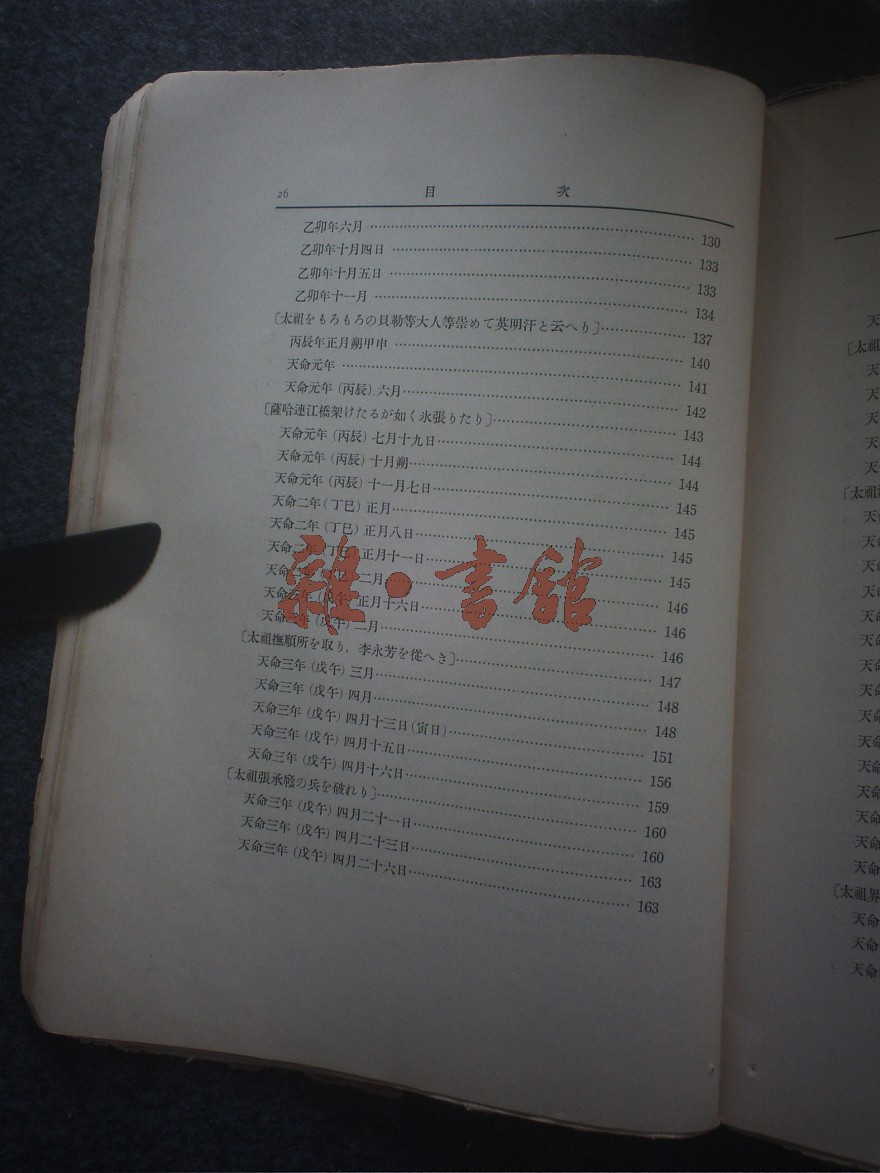 26 目次
乙卯年六月 …… 130
乙卯年十月四日 …… 133
乙卯年十月五日 …… 133
乙卯年十一月 …… 134
〔太祖をもろもろの貝勒等大人等崇めて英明汗と云へり〕…… 137
丙辰年正月朔甲申 …… 140
天命元年 …… 141
天命元年（丙辰）六月 …… 142
〔薩哈連江橋架けたるが如く氷張りたり〕…… 143
天命元年（丙辰）七月十九日 …… 144
天命元年（丙辰）十月朔 …… 144
天命元年（丙辰）十一月七日 …… 145
天命二年（丁巳）正月 …… 145
天命二年（丁巳）正月八日 …… 145
天命二年（丁巳）正月十一日 …… 145
天命二年（丁巳）二月 …… 146
天命三年（戊午）正月十六日 …… 146
天命三年（戊午）二月 …… 146
〔太祖撫順所を取り，李永芳を從へき〕…… 147
天命三年（戊午）三月 …… 148
天命三年（戊午）四月 …… 148
天命三年（戊午）四月十三日（寅日）…… 151
天命三年（戊午）四月十五日 …… 156
天命三年（戊午）四月十六日 …… 159
〔太祖張承廕の兵を破れり〕…… 160
天命三年（戊午）四月二十一日 …… 160
天命三年（戊午）四月二十三日 …… 163
天命三年（戊午）四月二十六日 …… 163
雜·書館
天
〔太祖
天
天
天
天
天
〔太祖
天
天
天
天
天
天
天
天
天
天
天命
天命
天命
天命
天命
〔太祖界
天命
天命
天命